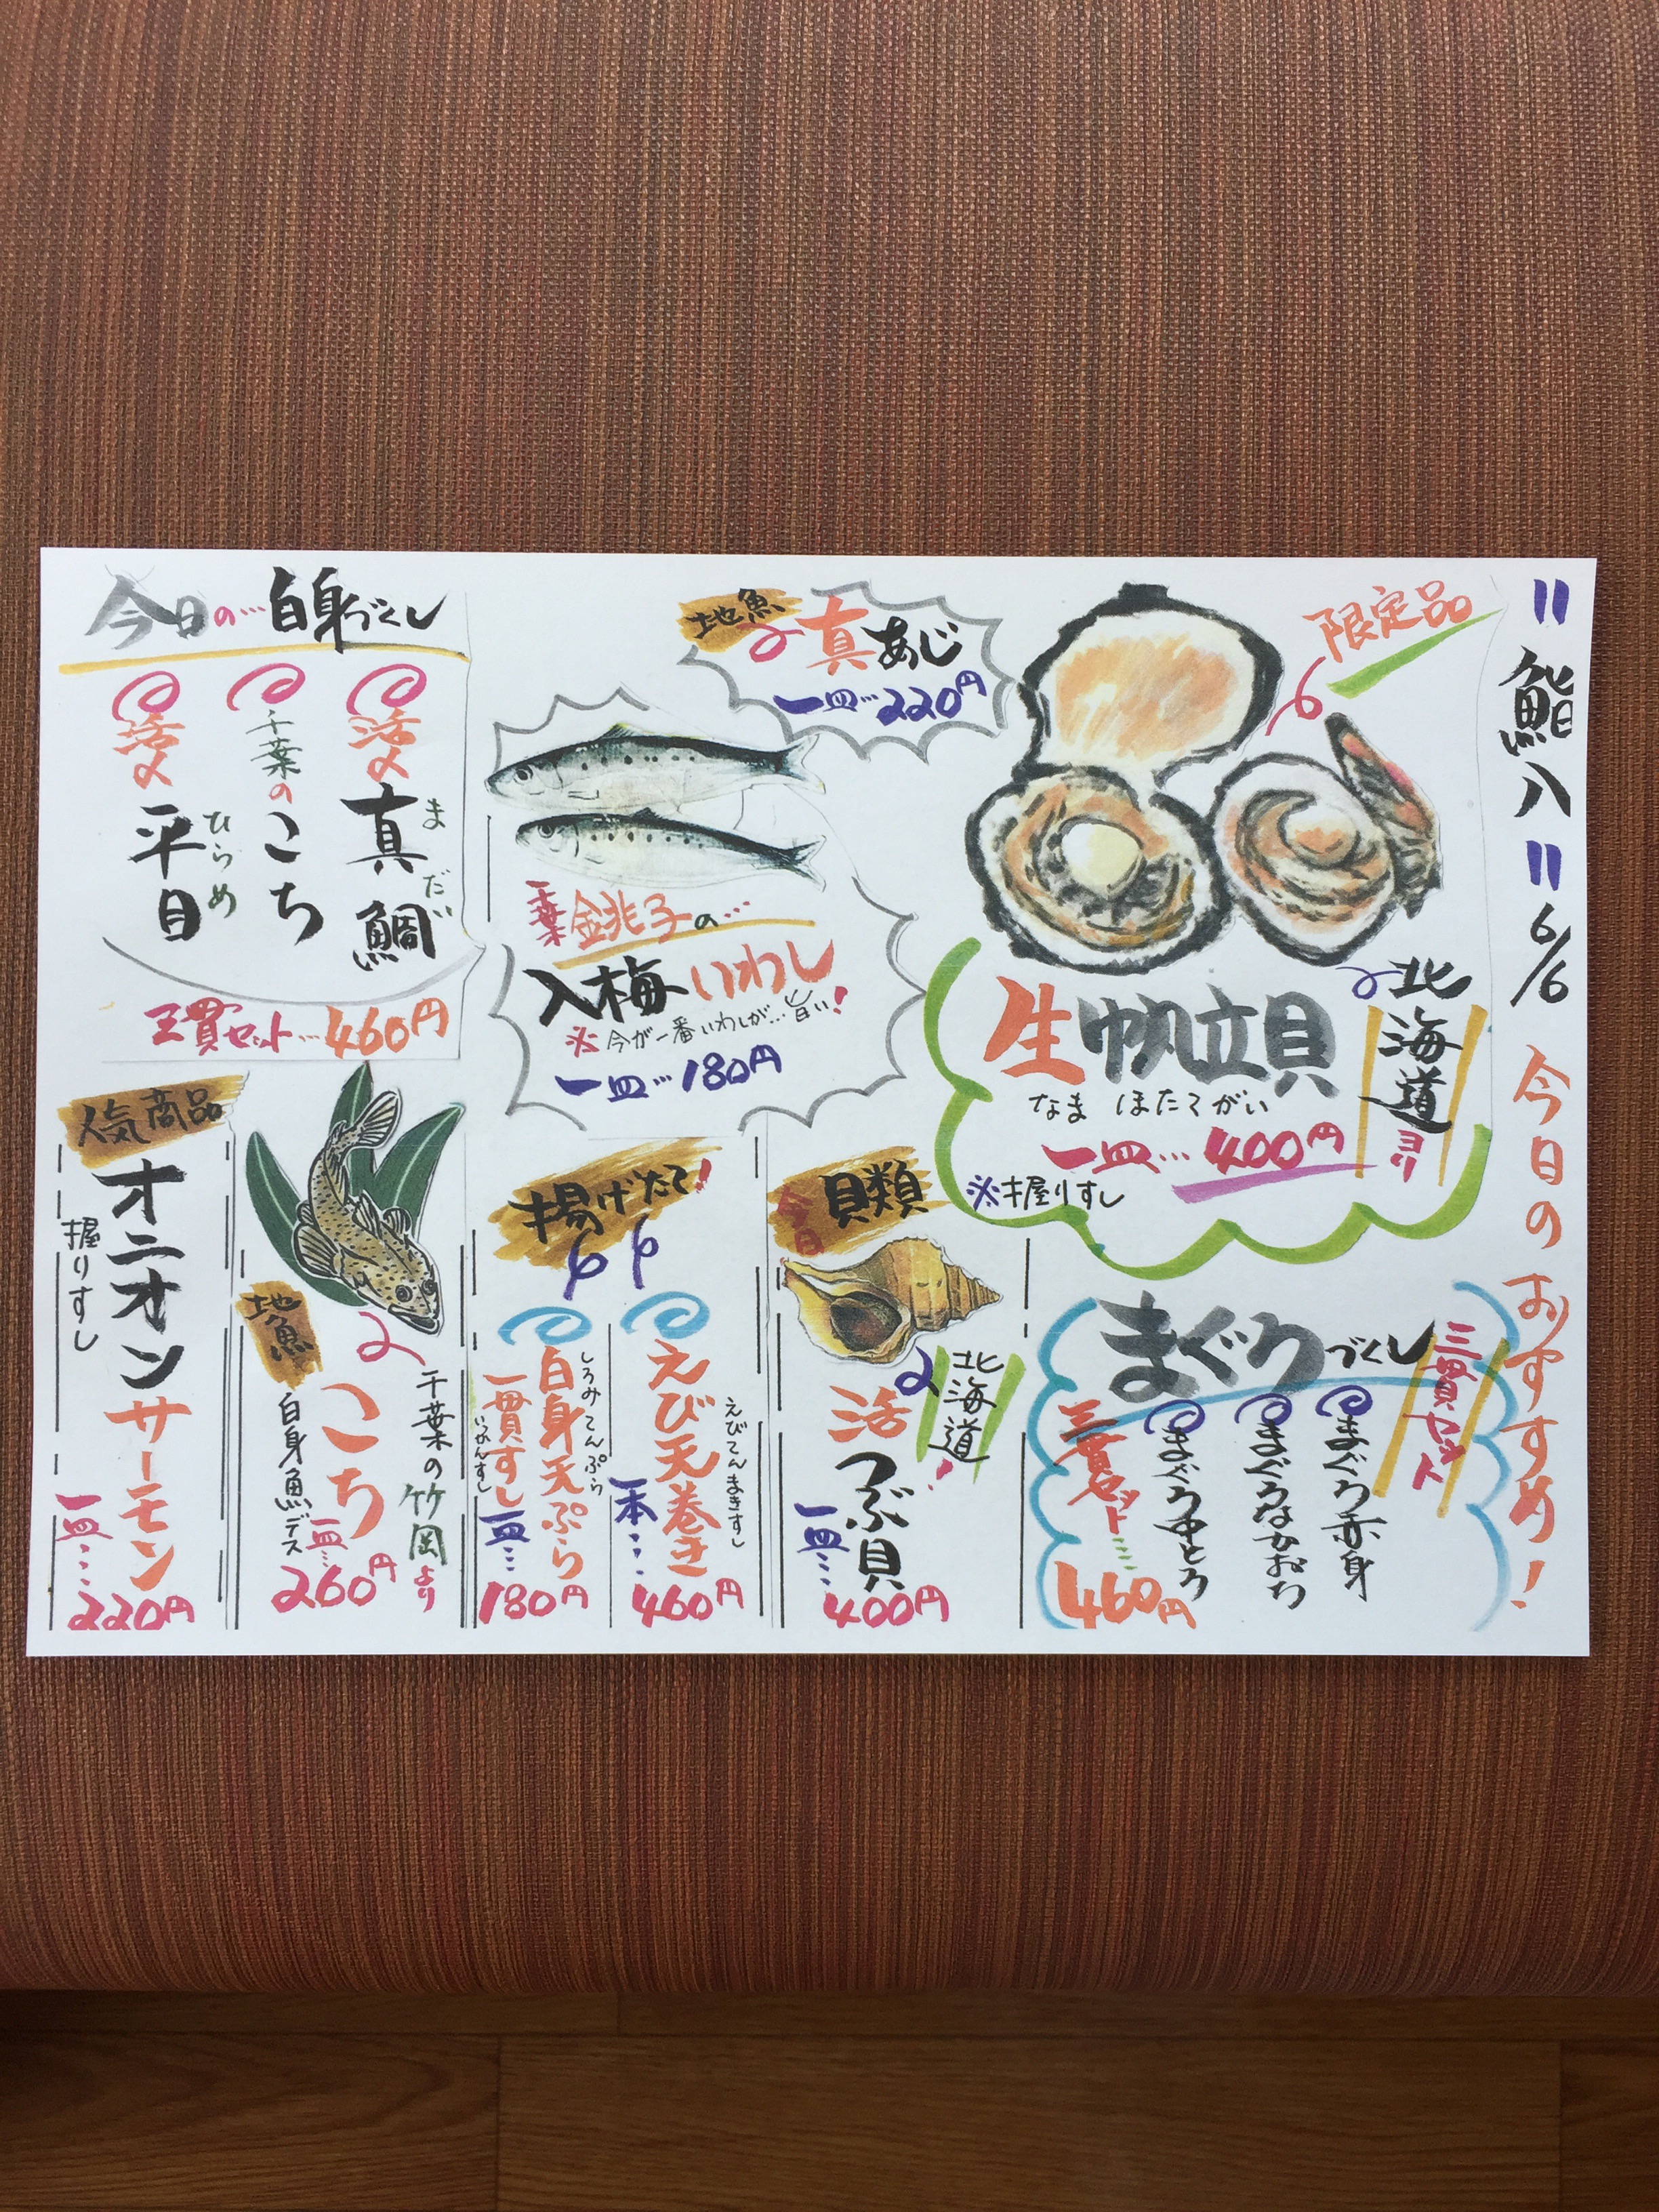 〃鮨八〃 6/6 今日のおすすめ!
限定品
北海道ヨリ
生帆立貝
なま ほたてがい
一皿…400円
※握りすし
地魚
真あじ
一皿…220円
千葉 銚子の…
入梅いわし
※今が一番いわしが…旨い!
一皿…180円
今日の…白身づくし
活〆真鯛
まだい
千葉のこち
活〆平目
ひらめ
三貫セット…460円
まぐろづくし
三貫セット
まぐろ赤身
まぐろなかおち
まぐろ中とろ
三貫セット…
460円
今日
貝類
北海道!
活つぶ貝
一皿…
400円
揚げたて!
えび天巻き
えびてんまきすし
一本…
460円
白身天ぷら
しろみてんぷら
一貫すし
いっかんすし
一皿…
180円
地魚
千葉の竹岡より
こち
白身魚デス
一皿…
260円
人気商品
オニオンサーモン
握りすし
一皿…
220円